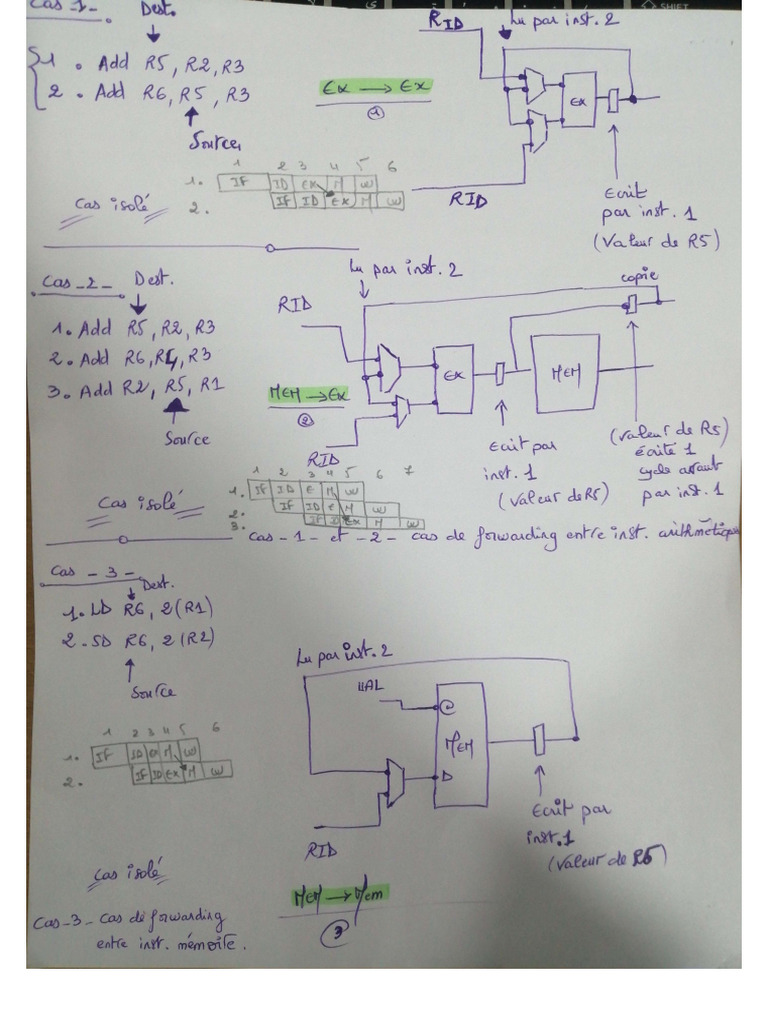 Cas_1_ Dest.
1. Add R5, R2, R3
2. Add R6, R5, R3
Source
Ex → Ex
1
RID
Lu par inst. 2
EX
RID
Ecrit
par inst. 1
(Valeur de R5)
1 2 3 4 5 6
1. IF ID EX M W
2. IF ID EX M W
Cas isolé
Cas_2_ Dest.
1. Add R5, R2, R3
2. Add R6, R4, R3
3. Add R2, R5, R1
Source
MEM → Ex
2
Lu par inst. 2
RID
copie
EX
MEM
RID
Ecrit par
inst. 1
(Valeur de R5)
(Valeur de R5)
écrite 1
cycle avant
par inst. 1
1 2 3 4 5 6 7
1. IF ID E M W
2. IF ID E M W
3. IF ID EX M W
Cas isolé
Cas_1_ et _2_ cas de forwarding entre inst. arithmétique
Cas _ 3 _
Dest.
1. LD R6, 2(R1)
2. SD R6, 2(R2)
Source
1 2 3 4 5 6
1. IF ID E M W
2. IF ID EX M W
Lu par inst. 2
UAL
@
MEM
D
RID
Ecrit par
inst. 1
(Valeur de R6)
Cas isolé
MEM → Mem
3
Cas_3_ Cas de forwarding
entre inst. mémoire.
SHIFT